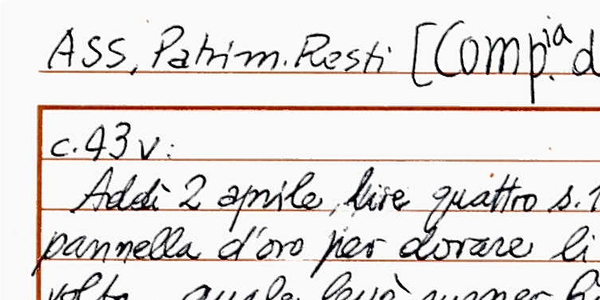 ASS, Patrim. Resti [Comp.ia d
c. 43 v:
Addì 2 aprile, lire quattro s. 1
pannella d'oro per dorare li
volta, quale levò